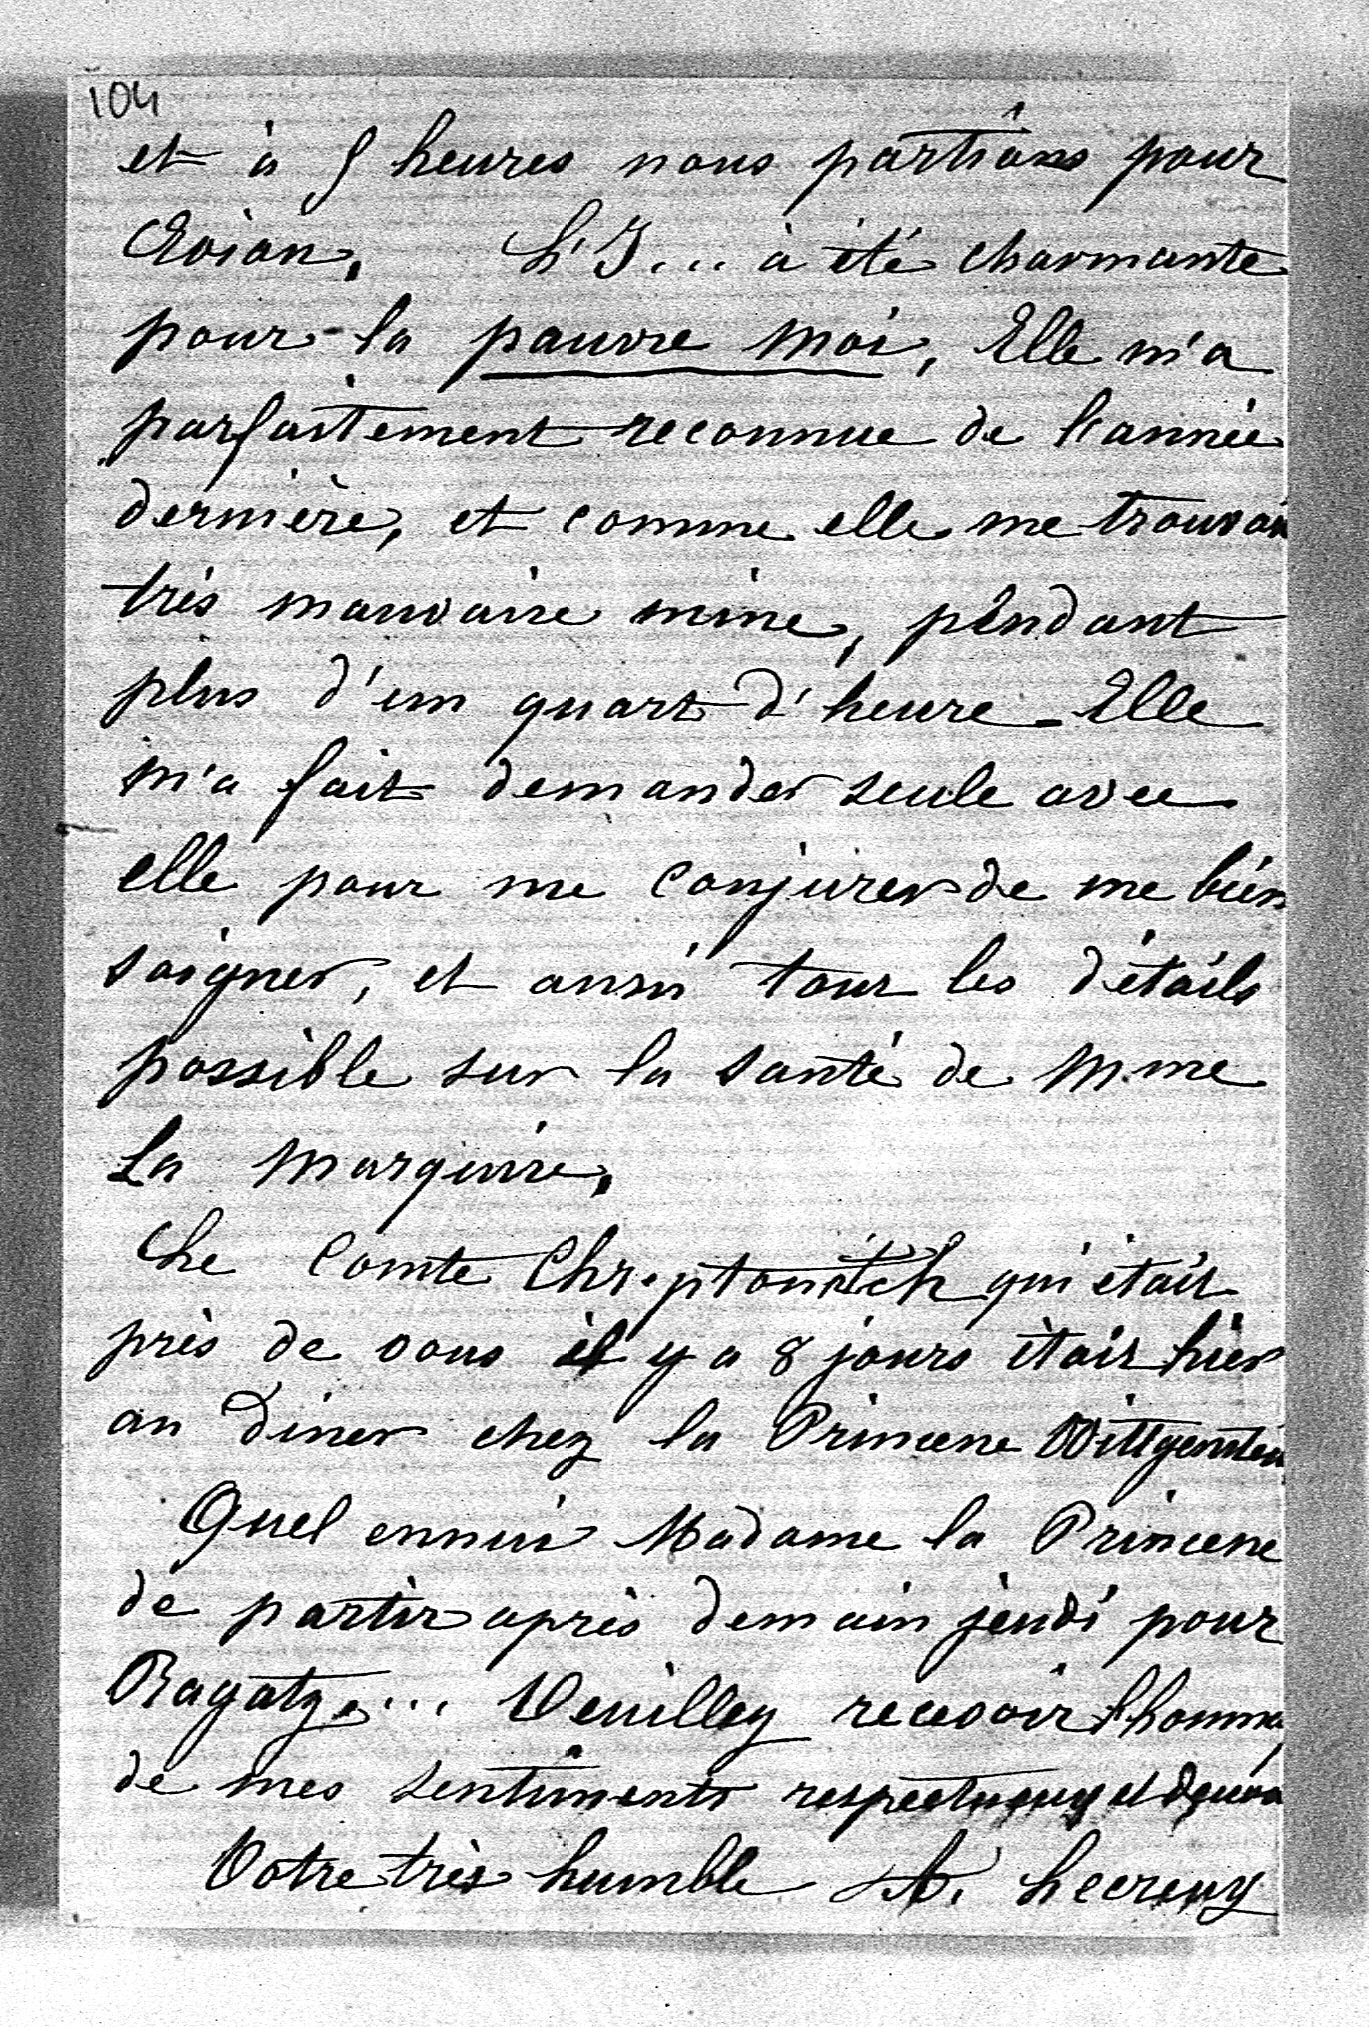 104
et à 9 heures nous partions pour
Evian. L'I... a été charmante
pour la pauvre moi, Elle m'a
parfaitement reconnue de l'année
dernière, et comme elle me trouvai
très mauvaise mine, pendant
plus d'un quart d'heure Elle
m'a fait demander seule avec
elle pour me conjurer de me bien
soigner, et aussi tour les détails
possible sur la santé de Mme
La Marquise.
Le Comte Chreptowitch qui était
près de vous il y a 8 jours était hier
au diner chez la Princesse Wittgenstein
Quel ennui Madame la Princesse
de partir après demain jeudi pour
Ragatz... Veuillez recevoir l'homma
de mes sentiments respectueux et
Votre très humble A.